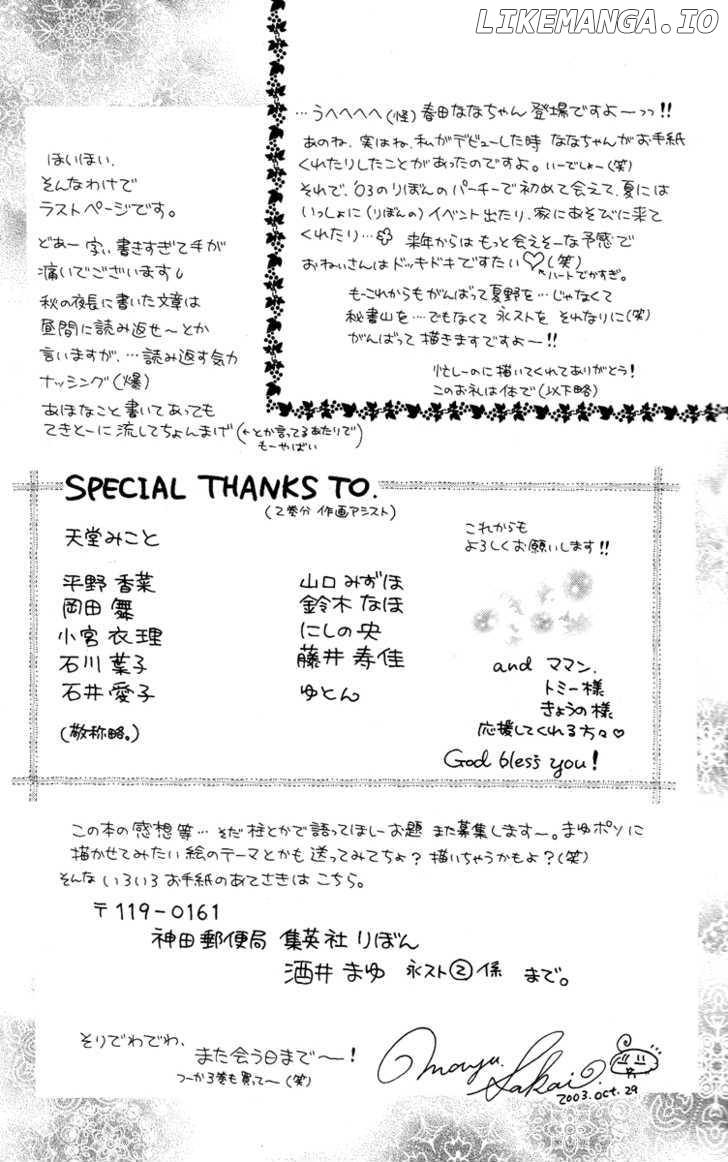 LIKEMANGA.IO
…うへへへへ(怪)春田ななちゃん登場ですよーっっ!!
あのね、実はね、私がデビューした時 ななちゃんがお手紙
くれたりしたことがあったのですよ。いーでしょー(笑)
それで、'03のりぼんのパーチーで初めて会えて、夏には
いっしょに(りぼんの)イベント出たり、家にあそびに来て
くれたり… 来年からはもっと会えそーな予感で
おねいさんはドッキドキですたい♡(笑)
↖ハートでかすぎ。
もーこれからもがんばって夏野を…じゃなくて
秘書山を…でもなくて 永ストを それなりに(笑)
がんばって描きますですよー!!
忙しーのに描いてくれてありがとう!
このお礼は体で(以下略)
ほいほい、
そんなわけで
ラストページです。
どあー 字ぃ書きすぎて手が
痛いでございます
秋の夜長に書いた文章は
昼間に読み返せ〜とか
言いますが、…読み返す気力
ナッシング(爆)
あほなこと書いてあっても
てきとーに流してちょんまげ(←とか言ってるあたりで
もーやばい)
SPECIAL THANKS TO.
(2巻分 作画アシスト)
天堂みこと
平野 香菜
岡田 舞
小宮 衣理
石川 葉子
石井 愛子
(敬称略。)
山口 みずほ
鈴木 なほ
にしの 央
藤井 寿佳
ゆとん
これからも
よろしくお願いします!!
and ママン、
トミー様
きょうの様
応援してくれる方々♡
God bless you!
この本の感想等… そだ 柱とかで語ってほしーお題 また募集します〜。まゆポソに
描かせてみたい絵のテーマとかも送ってみてちょ?描いちゃうかもよ?(笑)
そんな いろいろ お手紙のあてさきは こちら。
〒119-0161
神田郵便局 集英社 りぼん
酒井 まゆ 永スト②係 まで。
そりでわでわ、
また会う日まで〜!
つーか3巻も買って〜(笑)
Mayu. Sakai.
2003.oct.29